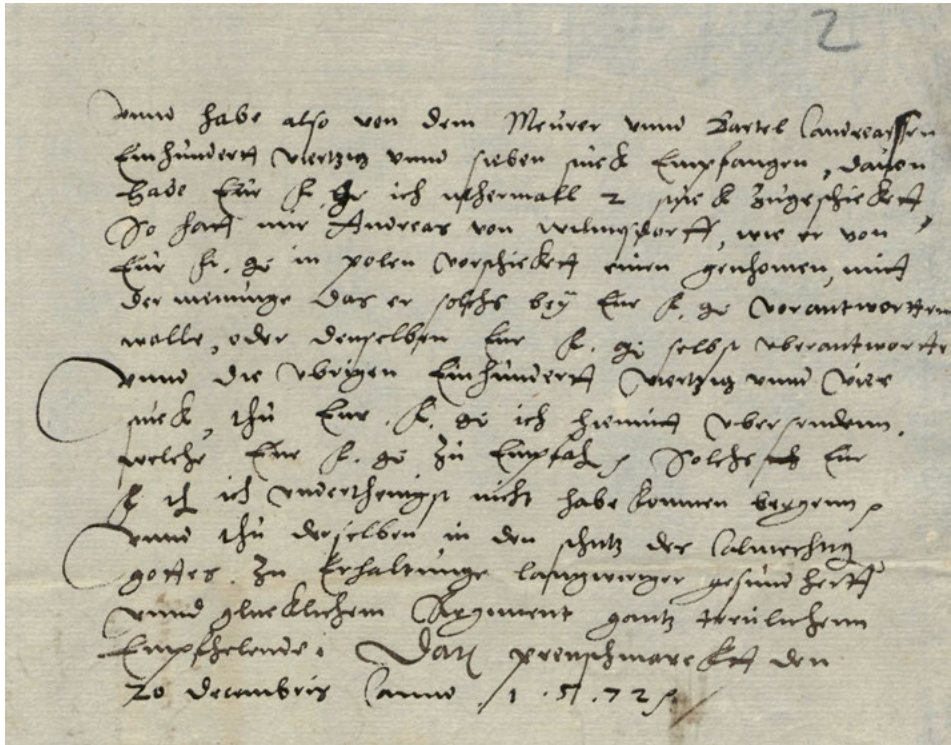 2
vnnd habe also von dem Meurer vnnd Bartel Andreassen
Einhundertt viertzig vnnd sieben stuck Empfangen, dauon
habe Eur f. ge ich nhermall 2 stuck zugeschicktt,
So hatt mir Andreas von wilmsdorff, wie er von
Eur f. ge in polen vorschicktt einen genhomen, mitt
der meinunge das er solchs bey Eur f. ge vorantwortten
wolle, oder denselben Eur f. ge selbst vberantwortte
vnnd die vbrigen Einhundertt viertzig vnnd vier
stuck, thu Eur . f. ge ich hiemitt vbersendenn,
welche Eur f. ge zu Empfah Solchs Eur
f ich vnderthenigst nicht habe konnen bergenn
vnnd thu derselben in den schutz des almechtig
gottes . zu Erhaltunge langwiriger gesundheitt
vnnd glucklichem Regiment gantz treulichenn
Empfhelende. Dat preuschmarcktt den
20 decembris Anno . 1 . 5 . 72